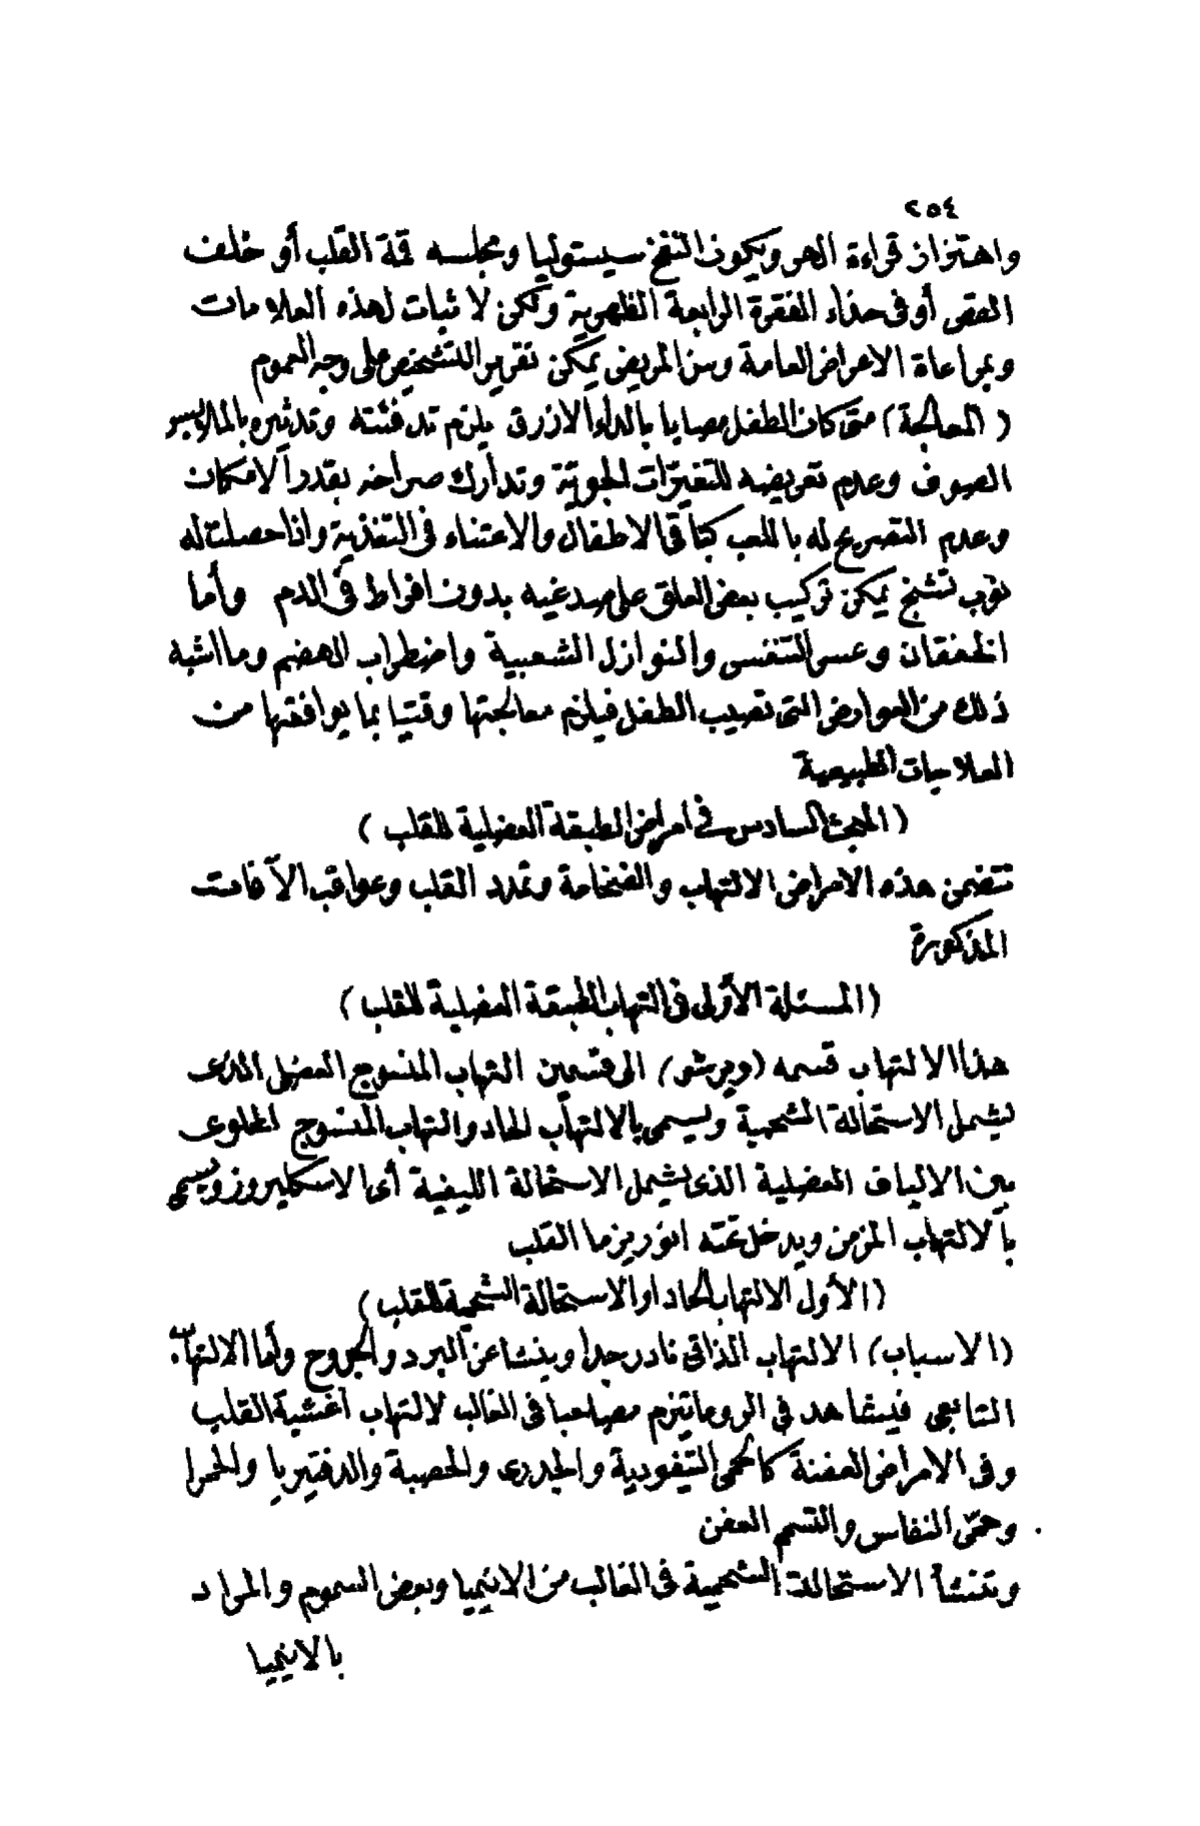 ٢٥٤
واهتزاز قراءة الهر ويكون النفخ سيستوليا ومجلسه قمة القلب أو خلف
القص أو فى حذاء الفقرة الرابعة الظهرية ولكن لا ثبات لهذه العلامات
وبمراعاة الاعراض العامة وسن المريض يمكن تقرير التشخيص على وجه العموم
(المعالجة) متى كان الطفل مصابا بالداء الازرق يلزم تدفئته وتدثيره بالملابس
الصوف وعدم تعريضه للتغيرات الجوية وتدارك صراخه بقدر الامكان
وعدم التصريح له باللعب كباقى الاطفال والاعتناء فى التغذية واذا حصلت له
نوب تشنج يمكن تركيب بعض العلق على صدغيه بدون افراط فى الدم وأما
الخفقان وعسر التنفس والنوازل الشعبية واضطراب الهضم وما اشبه
ذلك من العوارض التى تصيب الطفل فيلزم معالجتها وقتيا بما يوافقها من
العلاجات الطبيعية
(المبحث السادس فى امراض الطبقة العضلية للقلب)
تتضمن هذه الامراض الالتهاب والضخامة وتمدد القلب وعواقب الآفات
المذكورة
(المسئلة الأولى فى التهاب الطبقة العضلية للقلب)
هذا الالتهاب قسمه (ويرشو) الى قسمين التهاب المنسوج العضلى الذى
يشمل الاستحالة الشحمية ويسمى بالالتهاب الحاد والتهاب المنسوج الخلوى
بين الالياف العضلية الذى يشمل الاستحالة الليفية أى الاسكليروز ويسمى
بالالتهاب المزمن ويدخل تحته انوريزما القلب
(الأول الالتهاب الحاد او الاستحالة الشحمية للقلب)
(الاسباب) الالتهاب الذاتى نادر جدا وينشا عن البرد والجروح وأما الالتهاب
التابعى فيشاهد فى الروماتيزم مصاحبا فى الغالب لالتهاب اغشية القلب
وفى الامراض العفنة كالحمى التيفودية والجدرى والحصبة والدفتيريا والحمرا
وحمى النفاس والتسمم العفن
وتنشأ الاستحالة الشحمية فى الغالب من الانيميا وبعض السموم والمراد
بالانيميا